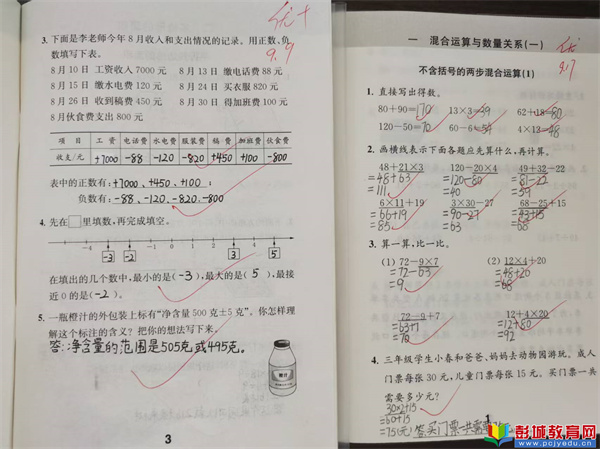 优+
9.9
3. 下面是李老师今年8月收入和支出情况的记录。用正数、负
数填写下表。
8月10日 工资收入7000元 8月13日 缴电话费88元
8月15日 缴水电费120元 8月24日 买衣服820元
8月26日 收到稿费450元 8月30日 得加班费100元
8月伙食费支出800元
项 目 工 资 电话费 水电费 服装费 稿 费 加班费 伙食费
收支/元 +7000 -88 -120 -820 +450 +100 -800
表中的正数有:+7000、+450、+100;
负数有:-88、-120、-820、-800
4. 先在□里填数,再完成填空。
-4 -1 0 1 2 4
-3 -2 3 5
在填出的几个数中,最小的是(-3),最大的是(5),最接
近0的是(-2)。
5. 一瓶橙汁的外包装上标有“净含量500克±5克”。你怎样理
解这个标注的含义?把你的想法写下来。
答:净含量的范围是505克或495克。
橙汁
3
优
9.17
一 混合运算与数量关系(一)
不含括号的两步混合运算(1)
1. 直接写出得数。
80+90=170 13×3=39 62+18=80
120-50=70 60-6=54 4×12=48
2. 画横线表示下面各题应先算什么,再计算。
48+21×3 120-20×4 49+32-22
=48+63 =120-80 =81-22
=111 =40 =59
6×11+19 3×30-27 68-25+15
=66+19 =90-27 =43+15
=85 =63
3. 算一算,比一比。
(1) 72-9×7 (2) 12×4+20
=72-63 =48+20
=9 =68
72-9+7 12+4×20
=63+7 =12+80
=70 =92
4. 三年级学生小春和爸爸、妈妈去动物园游玩。成人
门票每张30元,儿童门票每张15元。买门票一共
需要多少元?
30×2+15
=60+15
=75(元) 答:买门票一共需要
1
彭城教育网
www.pcjyw.com